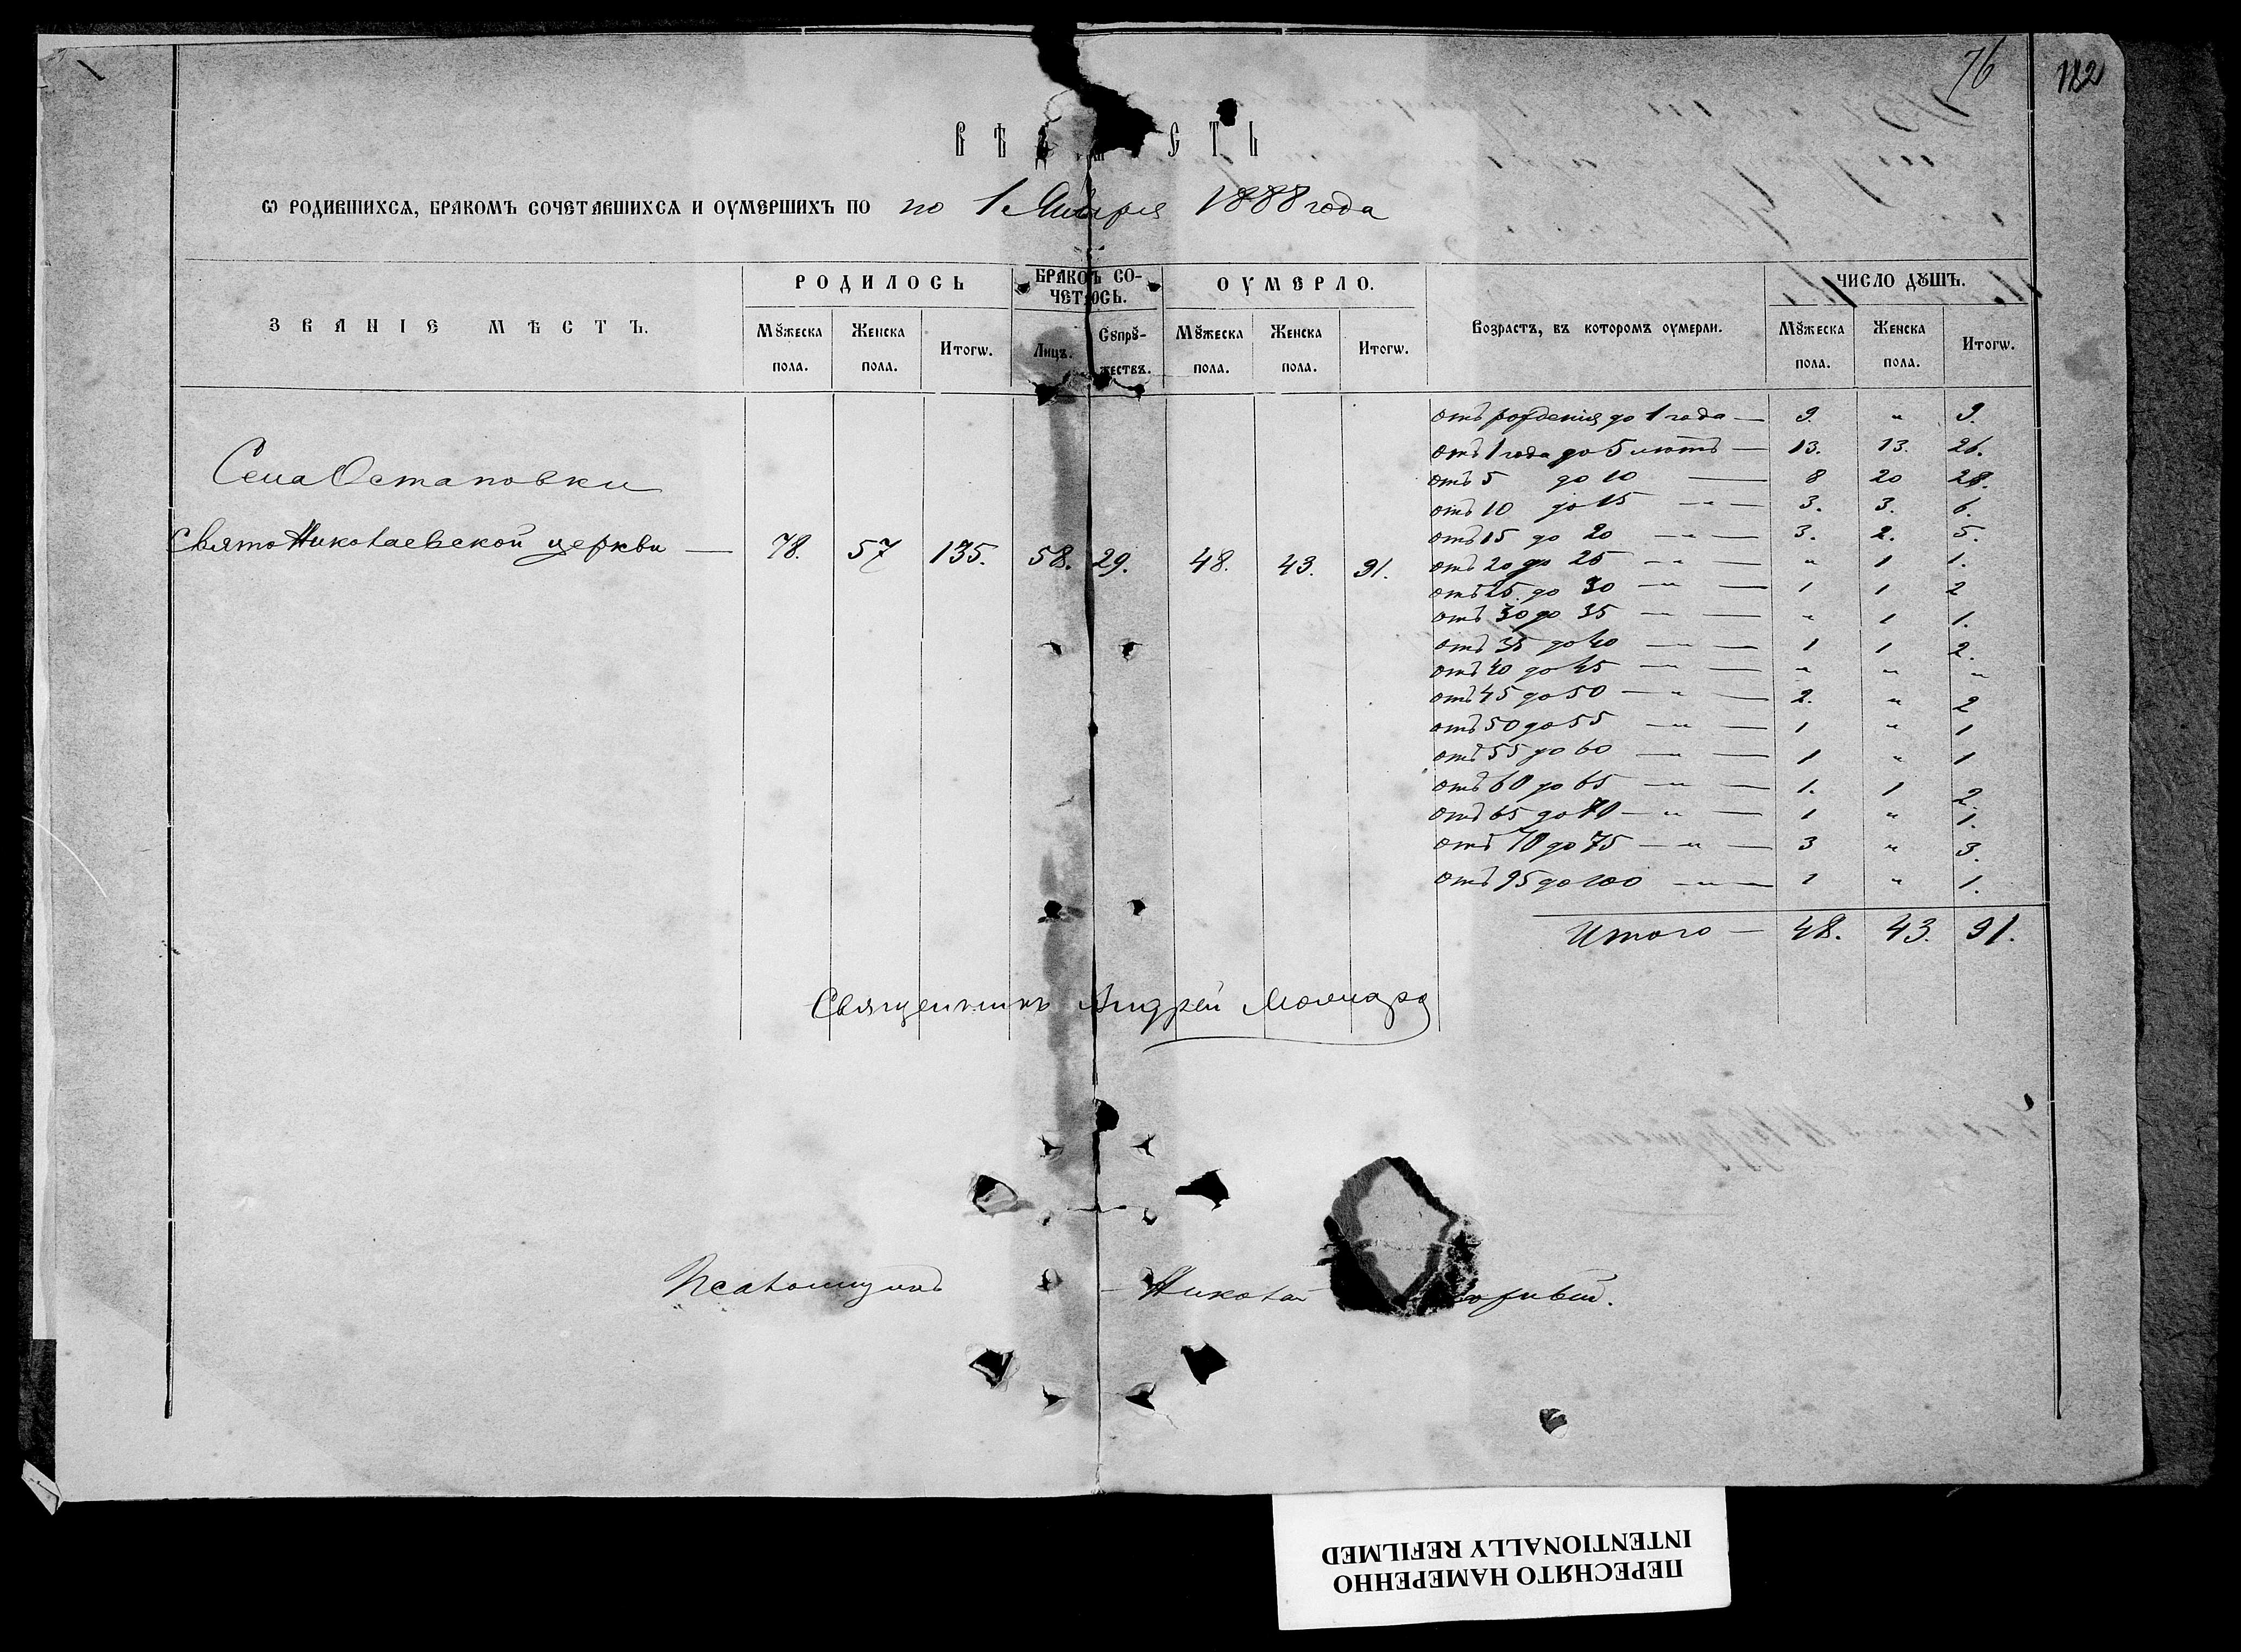 76
112
ВѢ СТЬ
Ѡ РОДИВШИХСѦ, БРАКОМЪ СОЧЕТАВШИХСѦ И ОУМЕРШИХЪ ПО по 1 Января 1888 года
ЗВАНІЕ МѢСТЪ.
РОДИЛОСЬ
БРАКОМЪ СО-
ЧЕТАЛОСЬ.
ОУМЕРЛО.
Возрастъ, въ которомъ оумерли.
ЧИСЛО ДꙊШЪ.
Мꙋжеска пола.
Женска пола.
Итогѡ.
Лицъ.
Сꙋпрꙋ-
жествъ.
Мꙋжеска пола.
Женска пола.
Итогѡ.
Мꙋжеска пола.
Женска пола.
Итогѡ.
Села Остаповки
Свято Николаевской церкви — 78. 57 135. 58. 29. 48. 43. 91.
отъ рожденія до 1 года — 9. " 9.
отъ 1 года до 5 лѣтъ — 13. 13. 26.
отъ 5 до 10 — 8 20 28.
отъ 10 до 15 — " — 3. 3. 6.
отъ 15 до 20 — " — 3. 2. 5.
отъ 20 до 25 — " — " 1 1.
отъ 25 до 30 — " — 1 1 2
отъ 30 до 35 — " — " 1 1.
отъ 35 до 40 — " — 1 1 2.
отъ 40 до 45 — " — " " "
отъ 45 до 50 — " — 2. " 2
отъ 50 до 55 — " — 1 " 1
отъ 55 до 60 — " — 1 " 1
отъ 60 до 65 — " — 1. 1 2.
отъ 65 до 70 — " — 1 " 1.
отъ 70 до 75 — " — 3 " 3.
отъ 95 до 100 — " — 1 " 1.
Итого — 48. 43. 91.
Священникъ Андрей
Псаломщикъ — Николай
ПЕРЕСНЯТО НАМЕРЕННО
INTENTIONALLY REFILMED